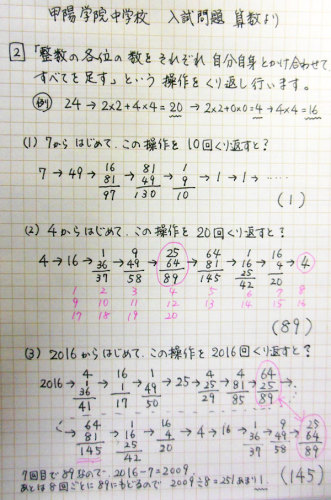 甲陽学院中学校 入試問題 算数より
2 「整数の各位の数をそれぞれ自分自身とかけ合わせて
すべてを足す」という操作をくり返し行います。
例 24 → 2×2+4×4=20 → 2×2+0×0=4 → 4×4=16
(1) 7からはじめて、この操作を10回くり返すと?
16 81 1
7 → 49 → 81 → 49 → 9 → 1 → 1 → ‥‥
97 130 10
(1)
(2) 4からはじめて、この操作を20回くり返すと?
1 9 25 64 1 16 4
4 → 16 → 36 → 49 → 64 → 81 → 16 → 4 → 16 → 4
37 58 89 145 25 20
42
1 2 3 4 5 6 7 8
9 10 11 12 13 14 15 16
17 18 19 20
(89)
(3) 2016からはじめて、この操作を2016回くり返すと?
4 16 1 4 4 64
2016 → 1 → 1 → 49 → 25 → 25 → 81 → 25 → ‥
36 17 50 29 85 89
41
64 1 16 1 9 25
81 → 16 → 4 → 4 → 16 → 36 → 49 → 64
145 25 20 37 58 89
42
7回目で89なので、2016-7=2009
あとは8回ごとに89にもどるので 2009÷8=251あまり1
(145)